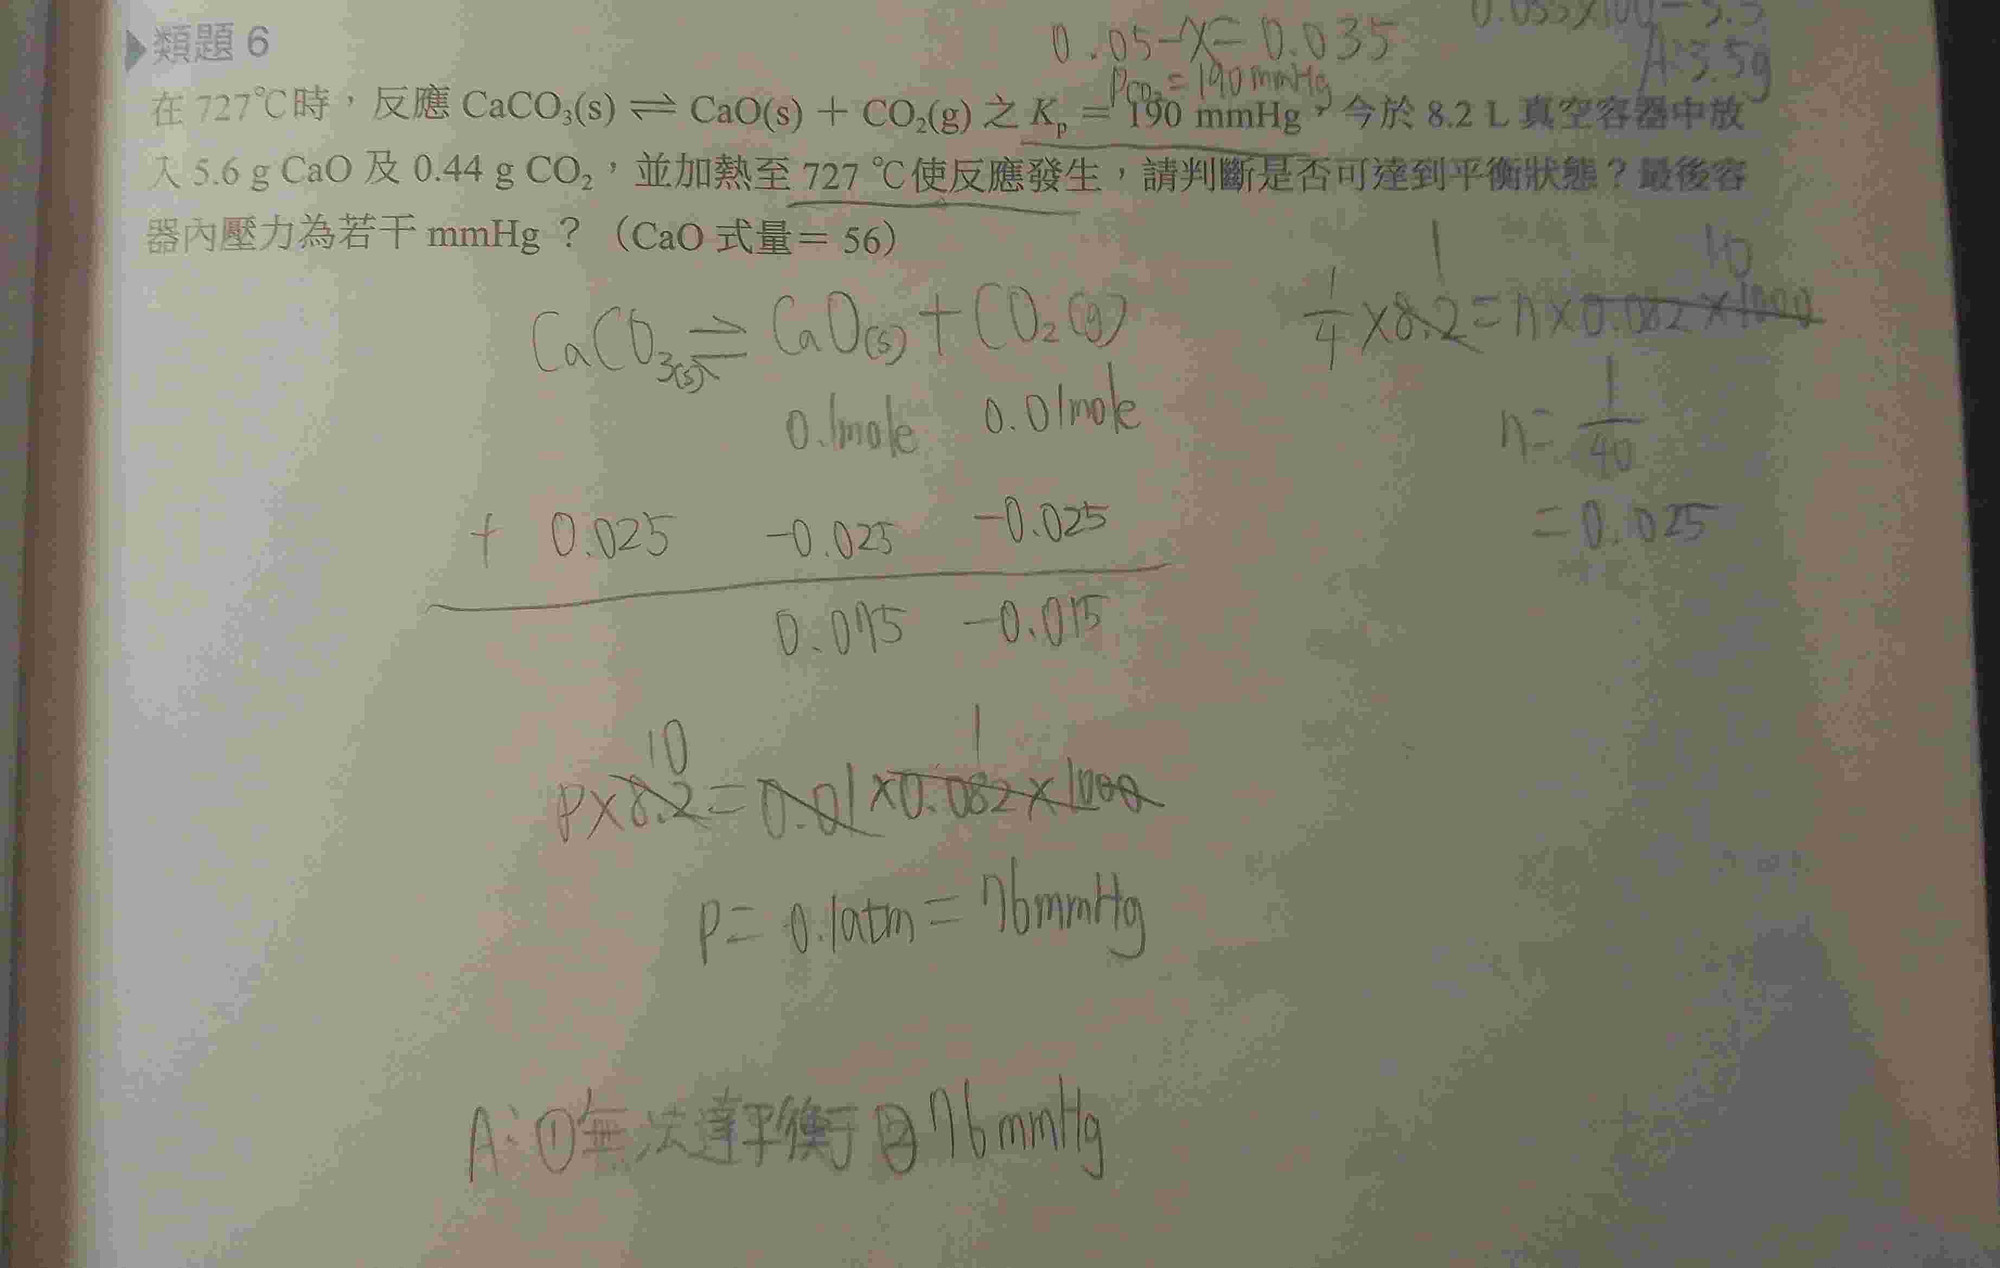 0.05-x=0.035
0.035×100=3.5
A:3.5g
▶類題 6
P_CO₂=190mmHg
在 727℃時，反應 CaCO₃(s) ⇌ CaO(s) + CO₂(g) 之 Kp = 190 mmHg，今於 8.2 L 真空容器中放
入 5.6 g CaO 及 0.44 g CO₂，並加熱至 727 ℃使反應發生，請判斷是否可達到平衡狀態？最後容
器內壓力為若干 mmHg ？（CaO 式量＝ 56）
CaCO₃(s) ⇌ CaO(s) + CO₂(g)
0.1mole 0.01mole
+ 0.025 -0.025 -0.025
0.075 -0.015
1 10
1/4×8.2=n×0.082×1000
n=1/40
=0.025
10 1
P×8.2=0.01×0.082×1000
P=0.1atm=76mmHg
A:①無法達平衡 ②76mmHg